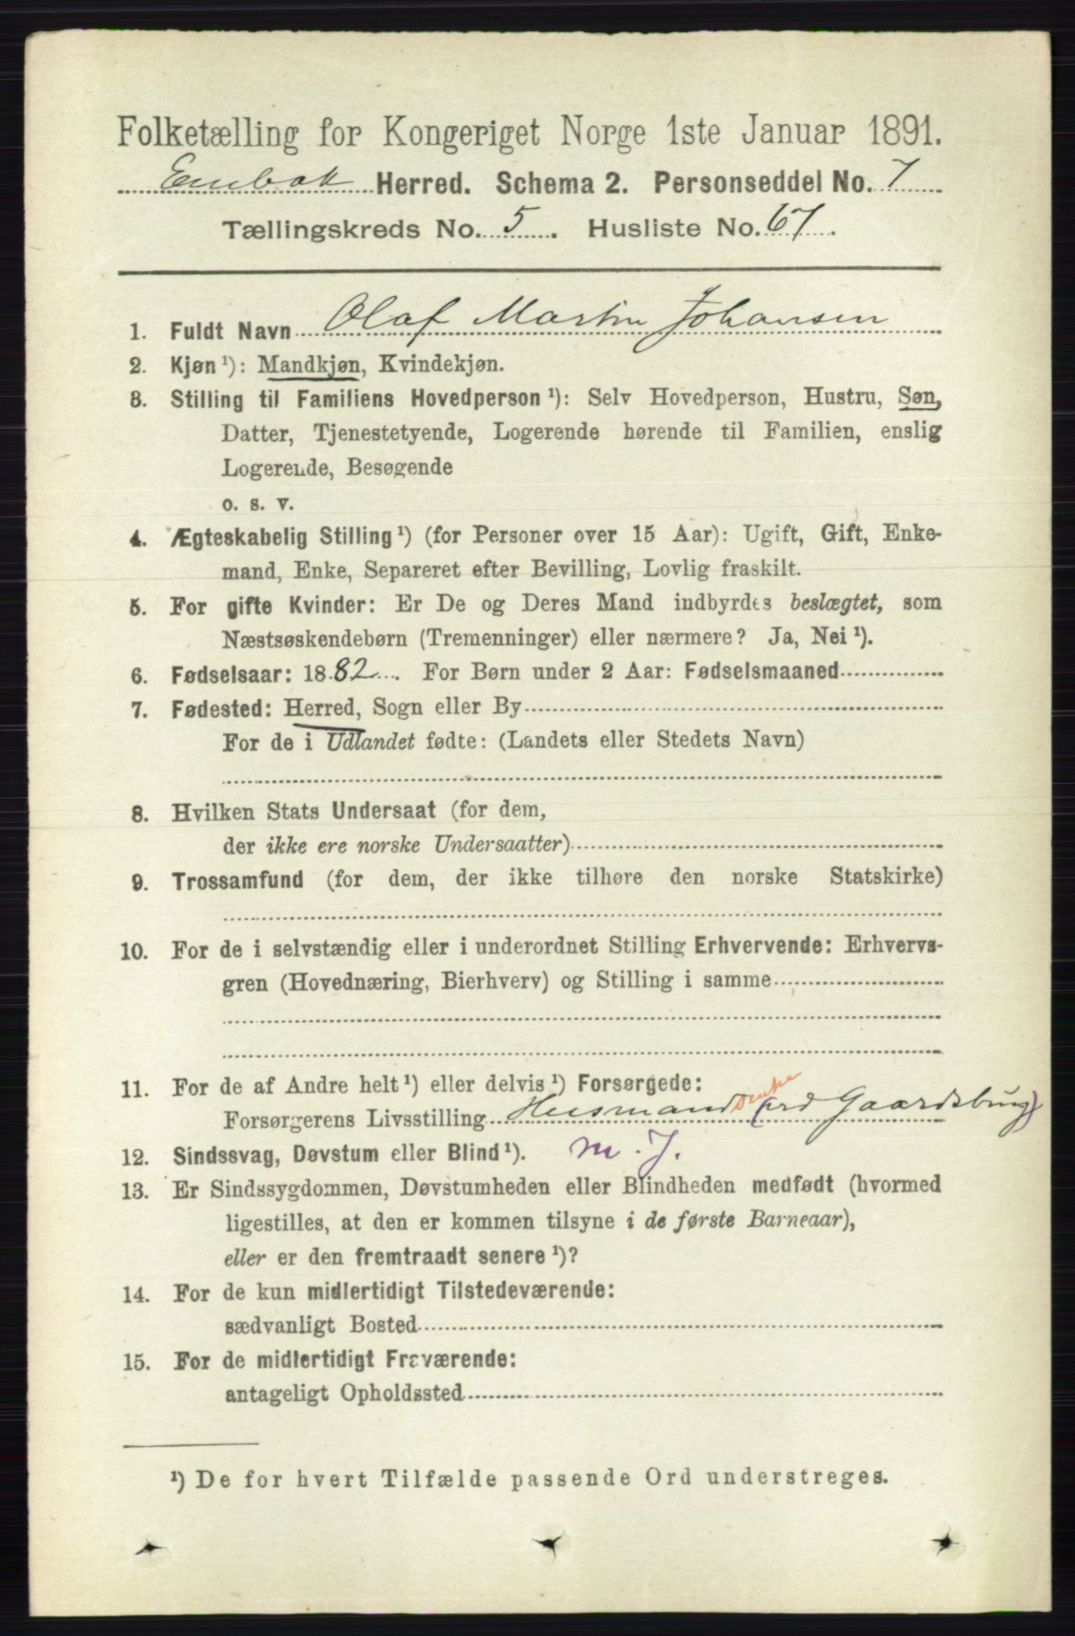 Folketælling for Kongeriget Norge 1ste Januar 1891.
Enebak Herred. Schema 2. Personseddel No. 7
Tællingskreds No. 5. Husliste No. 67.
1. Fuldt Navn Olaf Martin Johansen
2. Kjøn ¹): Mandkjøn, Kvindekjøn.
3. Stilling til Familiens Hovedperson ¹): Selv Hovedperson, Hustru, Søn,
Datter, Tjenestetyende, Logerende hørende til Familien, enslig
Logerende, Besøgende
o. s. v.
4. Ægteskabelig Stilling ¹) (for Personer over 15 Aar): Ugift, Gift, Enke-
mand, Enke, Separeret efter Bevilling, Lovlig fraskilt.
5. For gifte Kvinder: Er De og Deres Mand indbyrdes beslægtet, som
Næstsøskendebørn (Tremenninger) eller nærmere? Ja, Nei ¹).
6. Fødselsaar: 1882. For Børn under 2 Aar: Fødselsmaaned
7. Fødested: Herred, Sogn eller By
For de i Udlandet fødte: (Landets eller Stedets Navn)
8. Hvilken Stats Undersaat (for dem,
der ikke ere norske Undersaatter)
9. Trossamfund (for dem, der ikke tilhøre den norske Statskirke)
10. For de i selvstændig eller i underordnet Stilling Erhvervende: Erhvervs-
gren (Hovednæring, Bierhverv) og Stilling i samme
11. For de af Andre helt ¹) eller delvis ¹) Forsørgede:
Forsørgerens Livsstilling Husmand Gaardsbrug)
12. Sindssvag, Døvstum eller Blind ¹). m. J.
13. Er Sindssygdommen, Døvstumheden eller Blindheden medfødt (hvormed
ligestilles, at den er kommen tilsyne i de første Barneaar),
eller er den fremtraadt senere ¹)?
14. For de kun midlertidigt Tilstedeværende:
sædvanligt Bosted
15. For de midlertidigt Fraværende:
antageligt Opholdssted
¹) De for hvert Tilfælde passende Ord understreges.